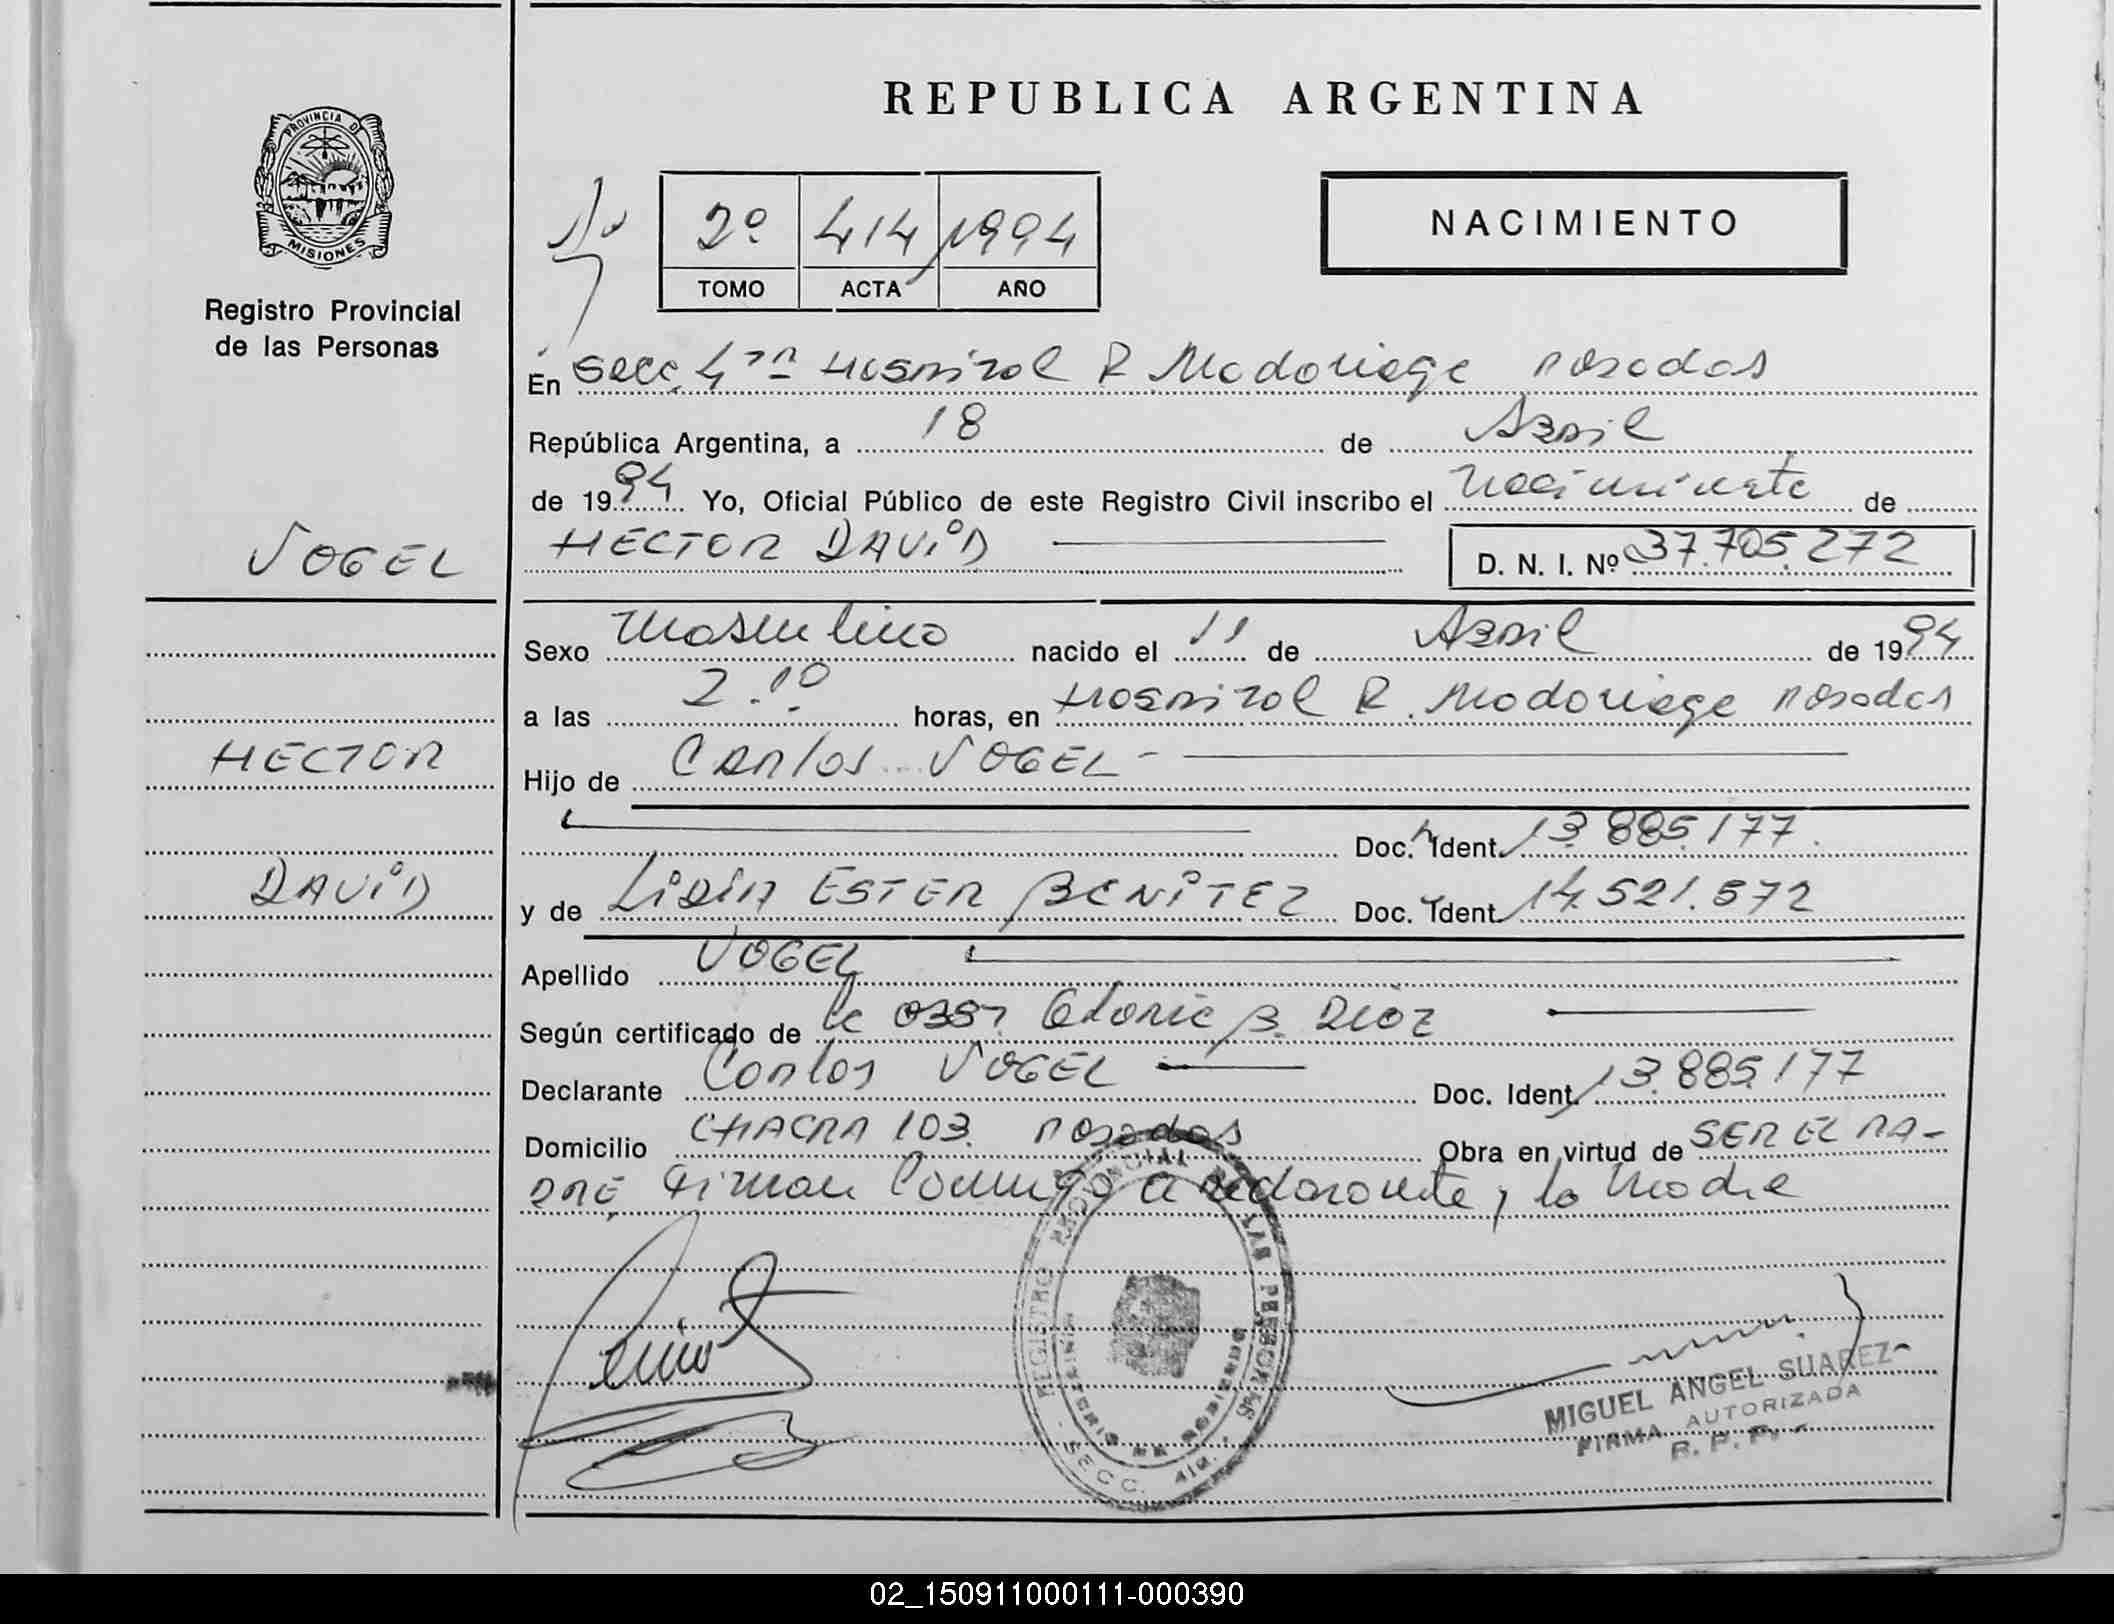 REPUBLICA ARGENTINA
PROVINCIA DE
MISIONES
Registro Provincial
de las Personas
2º 414 1994
TOMO ACTA AÑO
NACIMIENTO
En Secc. 4ta Hospital R Madariaga Posadas
República Argentina, a 18 de Abril
de 1994 Yo, Oficial Público de este Registro Civil inscribo el Nacimiento de
HECTOR DAVID D. N. I. Nº 37.705.272
VOGEL
Sexo Masculino nacido el 11 de Abril de 1994
a las 2.10 horas, en Hospital R. Madariaga Posadas
HECTOR
Hijo de Carlos VOGEL
Doc. Ident. 13.885.177
DAVID
y de LIDIA ESTER BENITEZ Doc. Ident. 14.521.572
Apellido VOGEL
Según certificado de la Obst. Gloria B. Diaz
Declarante Carlos VOGEL Doc. Ident. 13.885.177
Domicilio CHACRA 103. Posadas Obra en virtud de SER EL PA-
DRE, Firman Conmigo el declarante y la Madre
REGISTRO PROVINCIAL DE LAS PERSONAS
SECC. 4ta.
MIGUEL ANGEL SUAREZ
FIRMA AUTORIZADA
R. P. P.
02_150911000111-000390